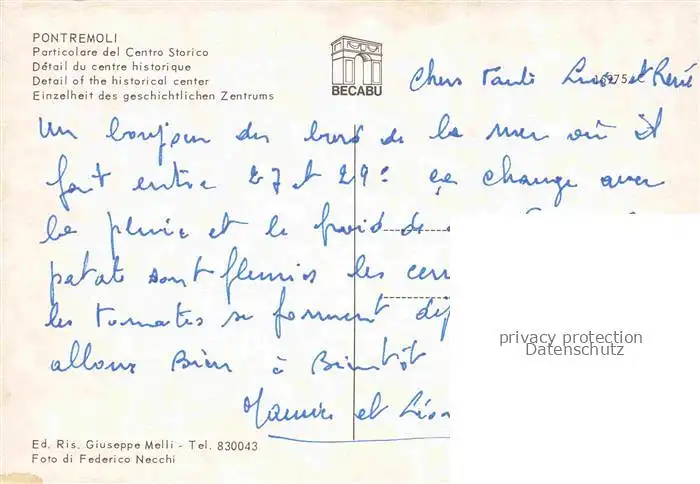 PONTREMOLI
Particolare del Centro Storico
Détail du centre historique
Detail of the historical center
Einzelheit des geschichtlichen Zentrums
BECABU
Chers Tante et René
Un bonjour du bord de la mer où il
fait entre 27 et 29° ça change avec
la pluie et le froid de
patate sont fleuries les
les tomates se forment
allons Bien à Bientôt
et
privacy protection
Datenschutz
Ed. Ris. Giuseppe Melli - Tel. 830043
Foto di Federico Necchi